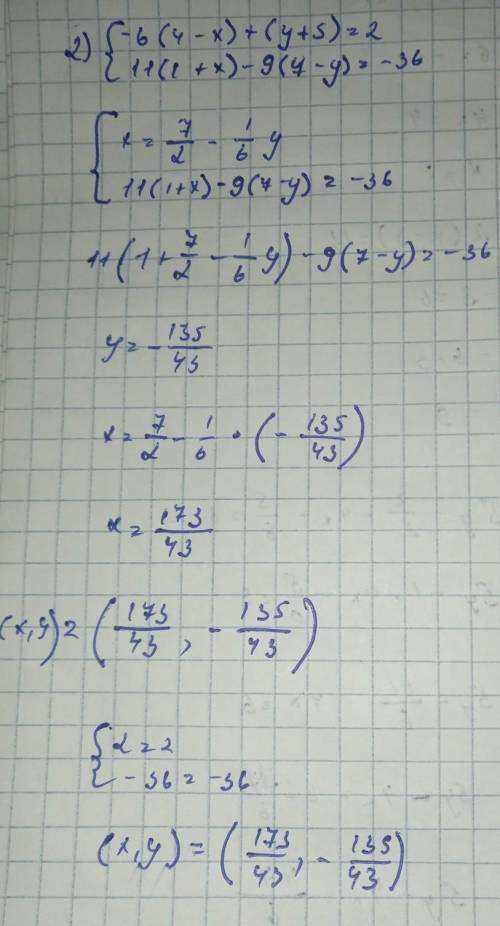 2) { -6(4-x)+(y+5)=2
11(1+x)-9(7-y)=-36
{ x = 7/2 - 1/6 y
11(1+x)-9(7-y)=-36
11(1+7/2-1/6 y)-9(7-y)=-36
y=-135/43
x=7/2-1/6·(-135/43)
x=173/43
(x,y)=(173/43, -135/43)
{ 2=2
-36=-36
(x,y)=(173/43, -135/43)